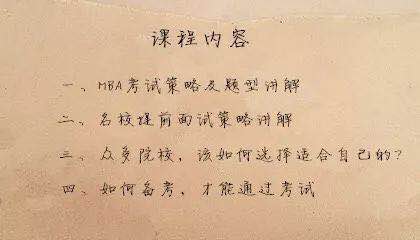 课程内容
一、MBA考试策略及题型讲解
二、名校提前面试策略讲解
三、众多院校，该如何选择适合自己的？
四、如何备考，才能通过考试